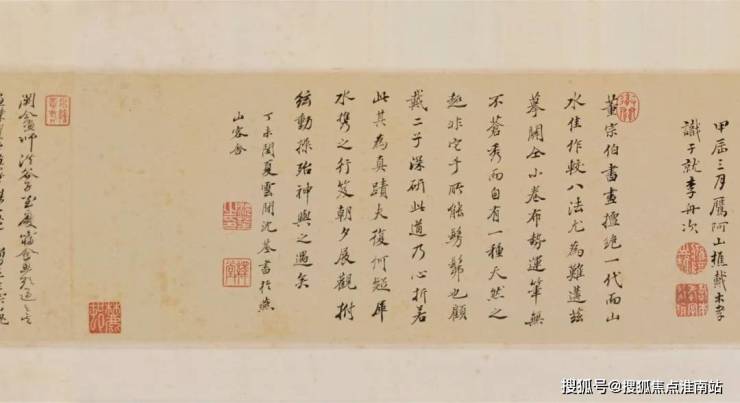 甲辰三月鷹阿山樵戴本孝
識于就李舟次
董宗伯書畫擅絶一代而山
水佳作較八法尤為難遘茲
摹關仝小卷布勢運筆無
不蒼秀而自有一種天然之
趣非它手所能髣髴也顧
戴二子深研此道乃心折若
此其為真蹟夫復何疑犀
水攜之行笈朝夕展觀拊
絃動操殆神與之遇矣
丁未閏夏雲間沈荃書於燕
山客舍
關仝師洪谷子
搜狐号@搜狐焦点淮南站